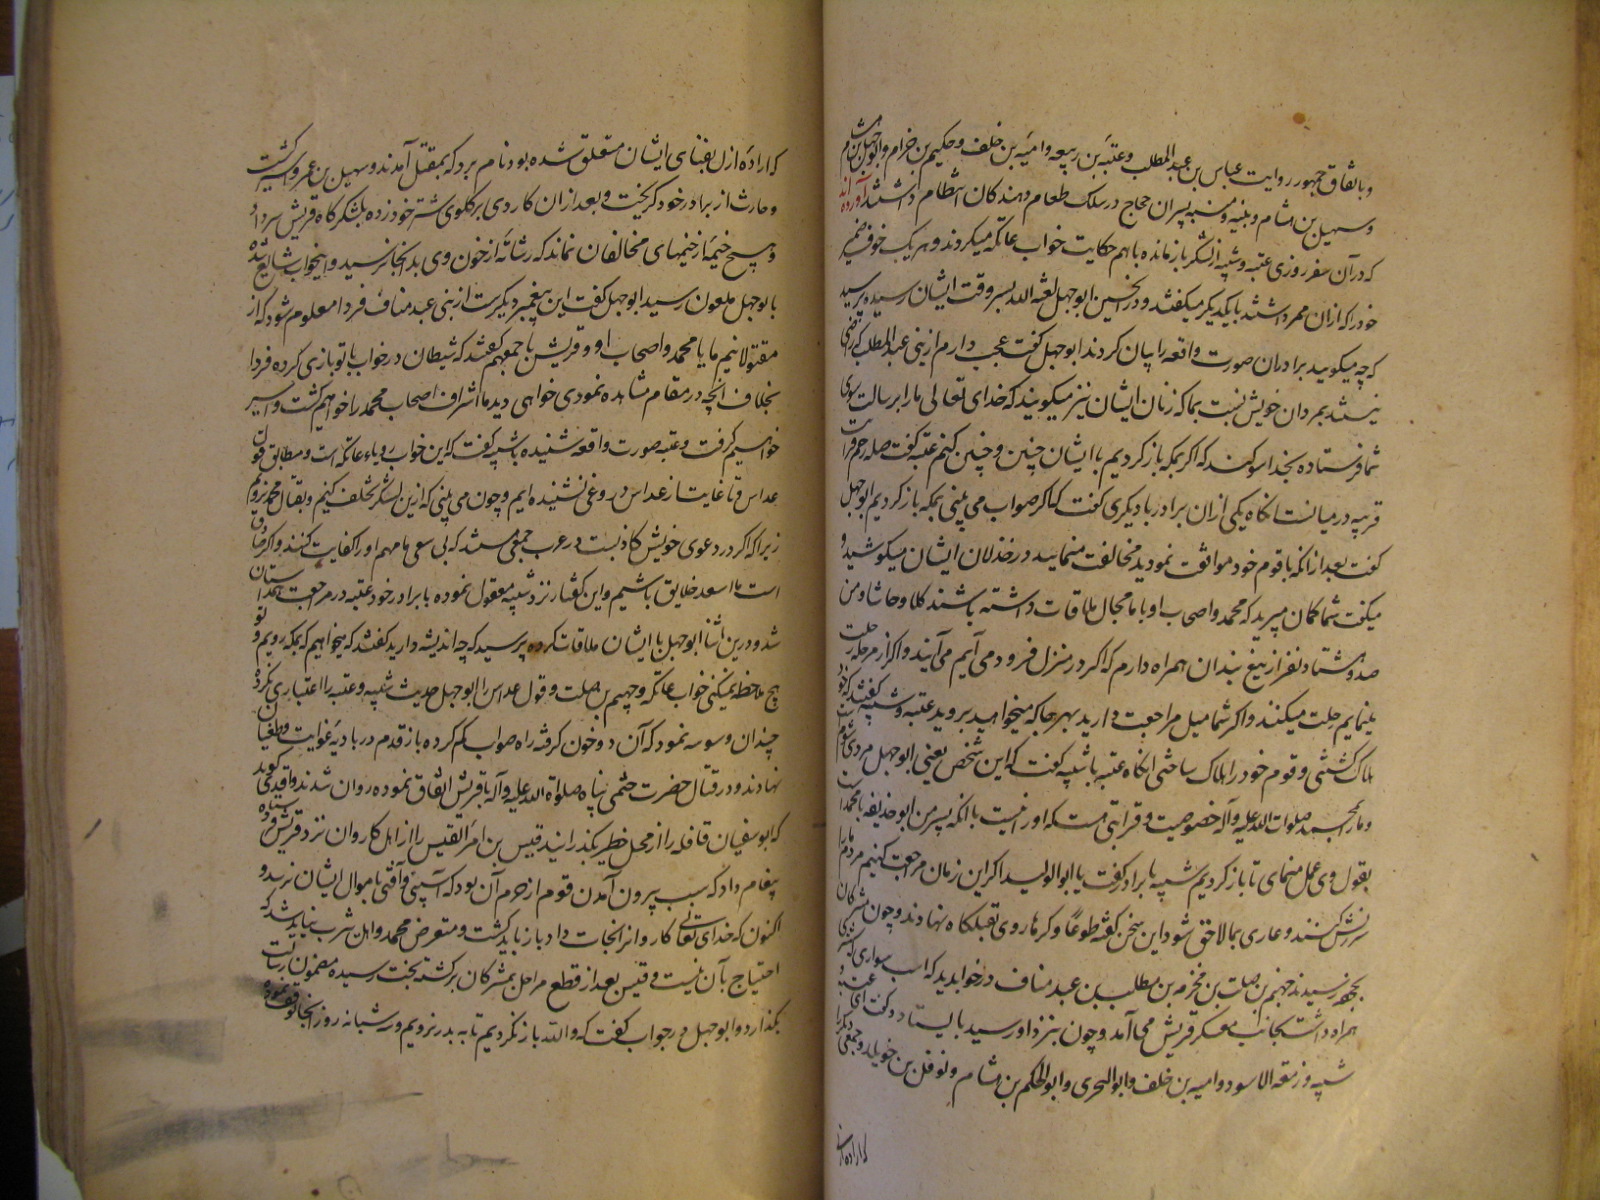 و باتفاق جمهور روایت عباس بن عبد المطلب و عتبة بن ربیعه و امیة بن خلف و حکیم بن حزام و ابو جهل بن هشام
و سهیل بن هشام و بنیه و منبه پسران حجاج در سلک طعام دهندکان انتظام داشتند آورده اند
که در آن سفر روزی عتبه و شیبه از لشکر باز مانده با هم حکایت خواب عاتکه میکردند و هر یک خوف ضمیر
خود را که ازان ممر داشتند با یکدیکر میکفتند و در انحین ابو جهل لعنه الله بسر وقت ایشان رسیده پرسید
که چه میکویید برادران صورت واقعه را بیان کردند ابو جهل کفت عجب دارم از بنی عبد المطلب که راضی
نیستند بمردان خویش نسبت بما که زنان ایشان نیز میکویند که خدای تعالی ما را برسالت بسوی
شما فرستاده بخدا سوکند که اکر بمکه باز کردیم با ایشان چنین و چنین کنیم عتبه کفت صله رحم و قرابت
قریبه در میانست انکاه یکی ازان برادر با دیکری کفت که اکر صواب می بینی بمکه باز کردیم ابو جهل
کفت بعد از انکه با قوم خود موافقت نمودید مخالفت منمایید در خذلان ایشان میکوشید و
میکفت شما کمان میبرید که محمد و اصحاب او با ما مجال ملاقات داشته باشند کلا و حاشا و من
صد و هشتاد نفر از تیغ بندان همراه دارم که اکر در منزل فرود می آیم می آیند و اکر از مرحله رحلت
مینمایم رحلت میکنند و اکر شما میل مراجعت دارید بهر جا که میخواهید بروید عتبه و شیبه کفتند که تو
هلاک کشتی و قوم خود را هلاک ساختی انکاه عتبه با شیبه کفت که این شخص یعنی ابو جهل مردی شوم است
و ما را بمحمد صلوات الله علیه و آله خصوصیت و قرابتی هست که او را نیست با انکه پسر من ابو حذیفه با محمد است
بقول وی عمل منمای تا باز کردیم شیبه با برادر کفت یا ابا الولید اکر این زمان مراجعت کنیم مردم ما را
سرزنش کنند و عاری بما لاحق شود این سخن کفته طوعا و کرها روی بقتلکاه نهادند و چون مشرکان
بجحفه رسیدند جهیم بن صلت بن مخرمه بن مطلب بن عبد مناف در خواب دید که اسب سواری که شتری
همراه داشت بجانب معسکر قریش می آمد و چون بنزد او رسید بایستاد و کفت ای عتبه و
شیبه و زمعة الاسود و امیه بن خلف و ابو البحری و ابو الحکم بن هشام و نوفل بن خویلد و جمعی دیکر را
که اراده
که اراده ازل بفنای ایشان متعلق شده بود نام برد که بمقتل آمدند و سهیل بن عمرو اسیر کشت
و حارث از برادر خود کریخت و بعد ازان کاردی بر کلوی شتر خود زده بلشکرکاه قریش سر داد
و هیچ خیمه از خیمهای مخالفان نماند که رشاشه از خون وی بدانجا نرسید و اینخواب شایع شده
بابو جهل ملعون رسید ابو جهل کفت این پیغمبر دیکر ست از بنی عبد مناف فردا معلوم شود که از
مقتولانیم ما یا محمد و اصحاب او و قریش با جمعهم کفتند که شیطان در خواب با تو بازی کرده فردا
بخلاف انچه در مقام مشاهده نمودی خواهی دید ما اشراف اصحاب محمد را خواهیم کشت و اسیر
خواهیم کرفت و عتبه صورت واقعه شنیده با شیبه کفت که این خواب رویاء عاتکه است و مطابق قول
عداس و تا غایت از عداس دروغی نشنیده ایم و چون می بینی که ازین لشکر تخلف کنیم و بقتال محمد نرویم
زیرا که اکر در دعوی خویش کاذبست در عرب جمعی هستند که بی سعی ما مهم او را کفایت کنند و اکر صادق
است ما اسعد خلایق باشیم و این کفتار نزد شیبه معقول نموده با برادر خود عتبه در مراجعت همداستان
شد و درین اثنا ابو جهل با ایشان ملاقات کرده پرسید که چه اندیشه دارید کفتند که میخواهیم که بمکه رویم و تو
هیچ ملاحظه نمیکنی خواب عاتکه و جهیم بن صلت و قول عداس را ابو جهل حدیث شیبه و عتبه را اعتباری نکرده
چندان وسوسه نمود که آن دو خون کرفته راه صواب کم کرده باز قدم در بادیه غوایت و طغیان
نهادند و در قتال حضرت ختمی پناه صلواة الله علیه و آله با قریش اتفاق نموده روان شدند واقدی کوید
که ابو سفیان قافله را از محل خطر بکذرانید قیس بن امرء القیس را از اهل کاروان نزد قریش فرستاده
پیغام داد که سبب بیرون آمدن قوم از حرم آن بود که آسیبی و آفتی باموال ایشان نرسد و
اکنون که خدای تعالی کاروان را نجات داد باز باید کشت و متعرض محمد و اهل یثرب نباید شد که
احتیاج بآن نیست و قیس بعد از قطع مراحل بمشرکان برکشته بخت رسیده مضمون رسالت
بکذارد و ابو جهل در جواب کفت که والله باز نکردیم تا به بدر نرویم و سه شبانه روز انجا توقف نموده